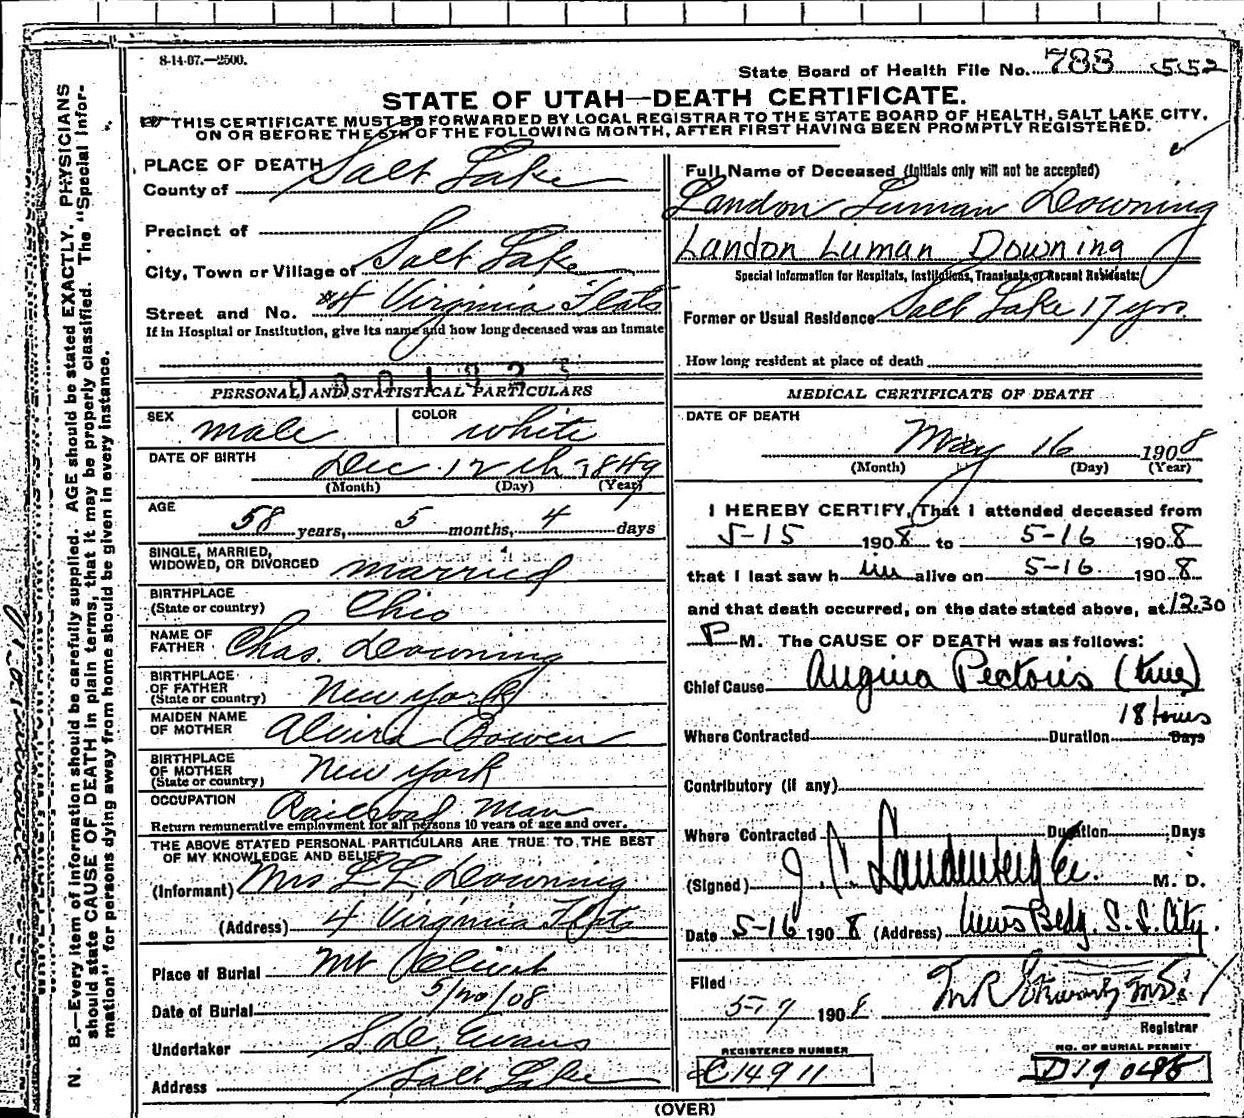 8-14-07.—2500.
State Board of Health File No. 788 552
STATE OF UTAH—DEATH CERTIFICATE.
THIS CERTIFICATE MUST BE FORWARDED BY LOCAL REGISTRAR TO THE STATE BOARD OF HEALTH, SALT LAKE CITY,
ON OR BEFORE THE 5TH OF THE FOLLOWING MONTH, AFTER FIRST HAVING BEEN PROMPTLY REGISTERED.
N. B.—Every item of information should be carefully supplied. AGE should be stated EXACTLY. PHYSICIANS
should state CAUSE OF DEATH in plain terms, that it may be properly classified. The "Special Infor-
mation" for persons dying away from home should be given in every instance.
PLACE OF DEATH
County of Salt Lake
Precinct of
City, Town or Village of Salt Lake
Street and No. #4 Virginia Flats
If in Hospital or Institution, give its name and how long deceased was an inmate
PERSONAL AND STATISTICAL PARTICULARS
SEX male COLOR white
DATE OF BIRTH Dec. 12th 1849
(Month) (Day) (Year)
AGE 58 years, 5 months, 4 days
SINGLE, MARRIED,
WIDOWED, OR DIVORCED married
BIRTHPLACE
(State or country) Ohio
NAME OF
FATHER Chas. Downing
BIRTHPLACE
OF FATHER
(State or country) New York
MAIDEN NAME
OF MOTHER Alvira Bowen
BIRTHPLACE
OF MOTHER
(State or country) New York
OCCUPATION Railroad Man
Return remunerative employment for all persons 10 years of age and over.
THE ABOVE STATED PERSONAL PARTICULARS ARE TRUE TO THE BEST
OF MY KNOWLEDGE AND BELIEF
(Informant) Mrs L L Downing
(Address) 4 Virginia Flats
Place of Burial Mt Olivet
Date of Burial 5/20/08
Undertaker Evans
Address Salt Lake
Full Name of Deceased (Initials only will not be accepted)
Landon Luman Downing
Landon Luman Downing
Special Information for Hospitals, Institutions, Transients or Recent Residents:
Former or Usual Residence Salt Lake 17 yrs.
How long resident at place of death
MEDICAL CERTIFICATE OF DEATH
DATE OF DEATH
May 16 1908
(Month) (Day) (Year)
I HEREBY CERTIFY, That I attended deceased from
5-15 1908 to 5-16 1908
that I last saw him alive on 5-16. 1908
and that death occurred, on the date stated above, at 12.30
P M. The CAUSE OF DEATH was as follows:
Chief Cause Angina Pectoris (true)
18 hours
Where Contracted Duration Days
Contributory (if any)
Where Contracted Duration Days
(Signed) J. C. Landenberger M. D.
Date 5-16 1908 (Address) News Bldg. S. L. City.
Filed
5- 1908
Registrar
REGISTERED NUMBER
C 14911
NO. OF BURIAL PERMIT
(OVER)